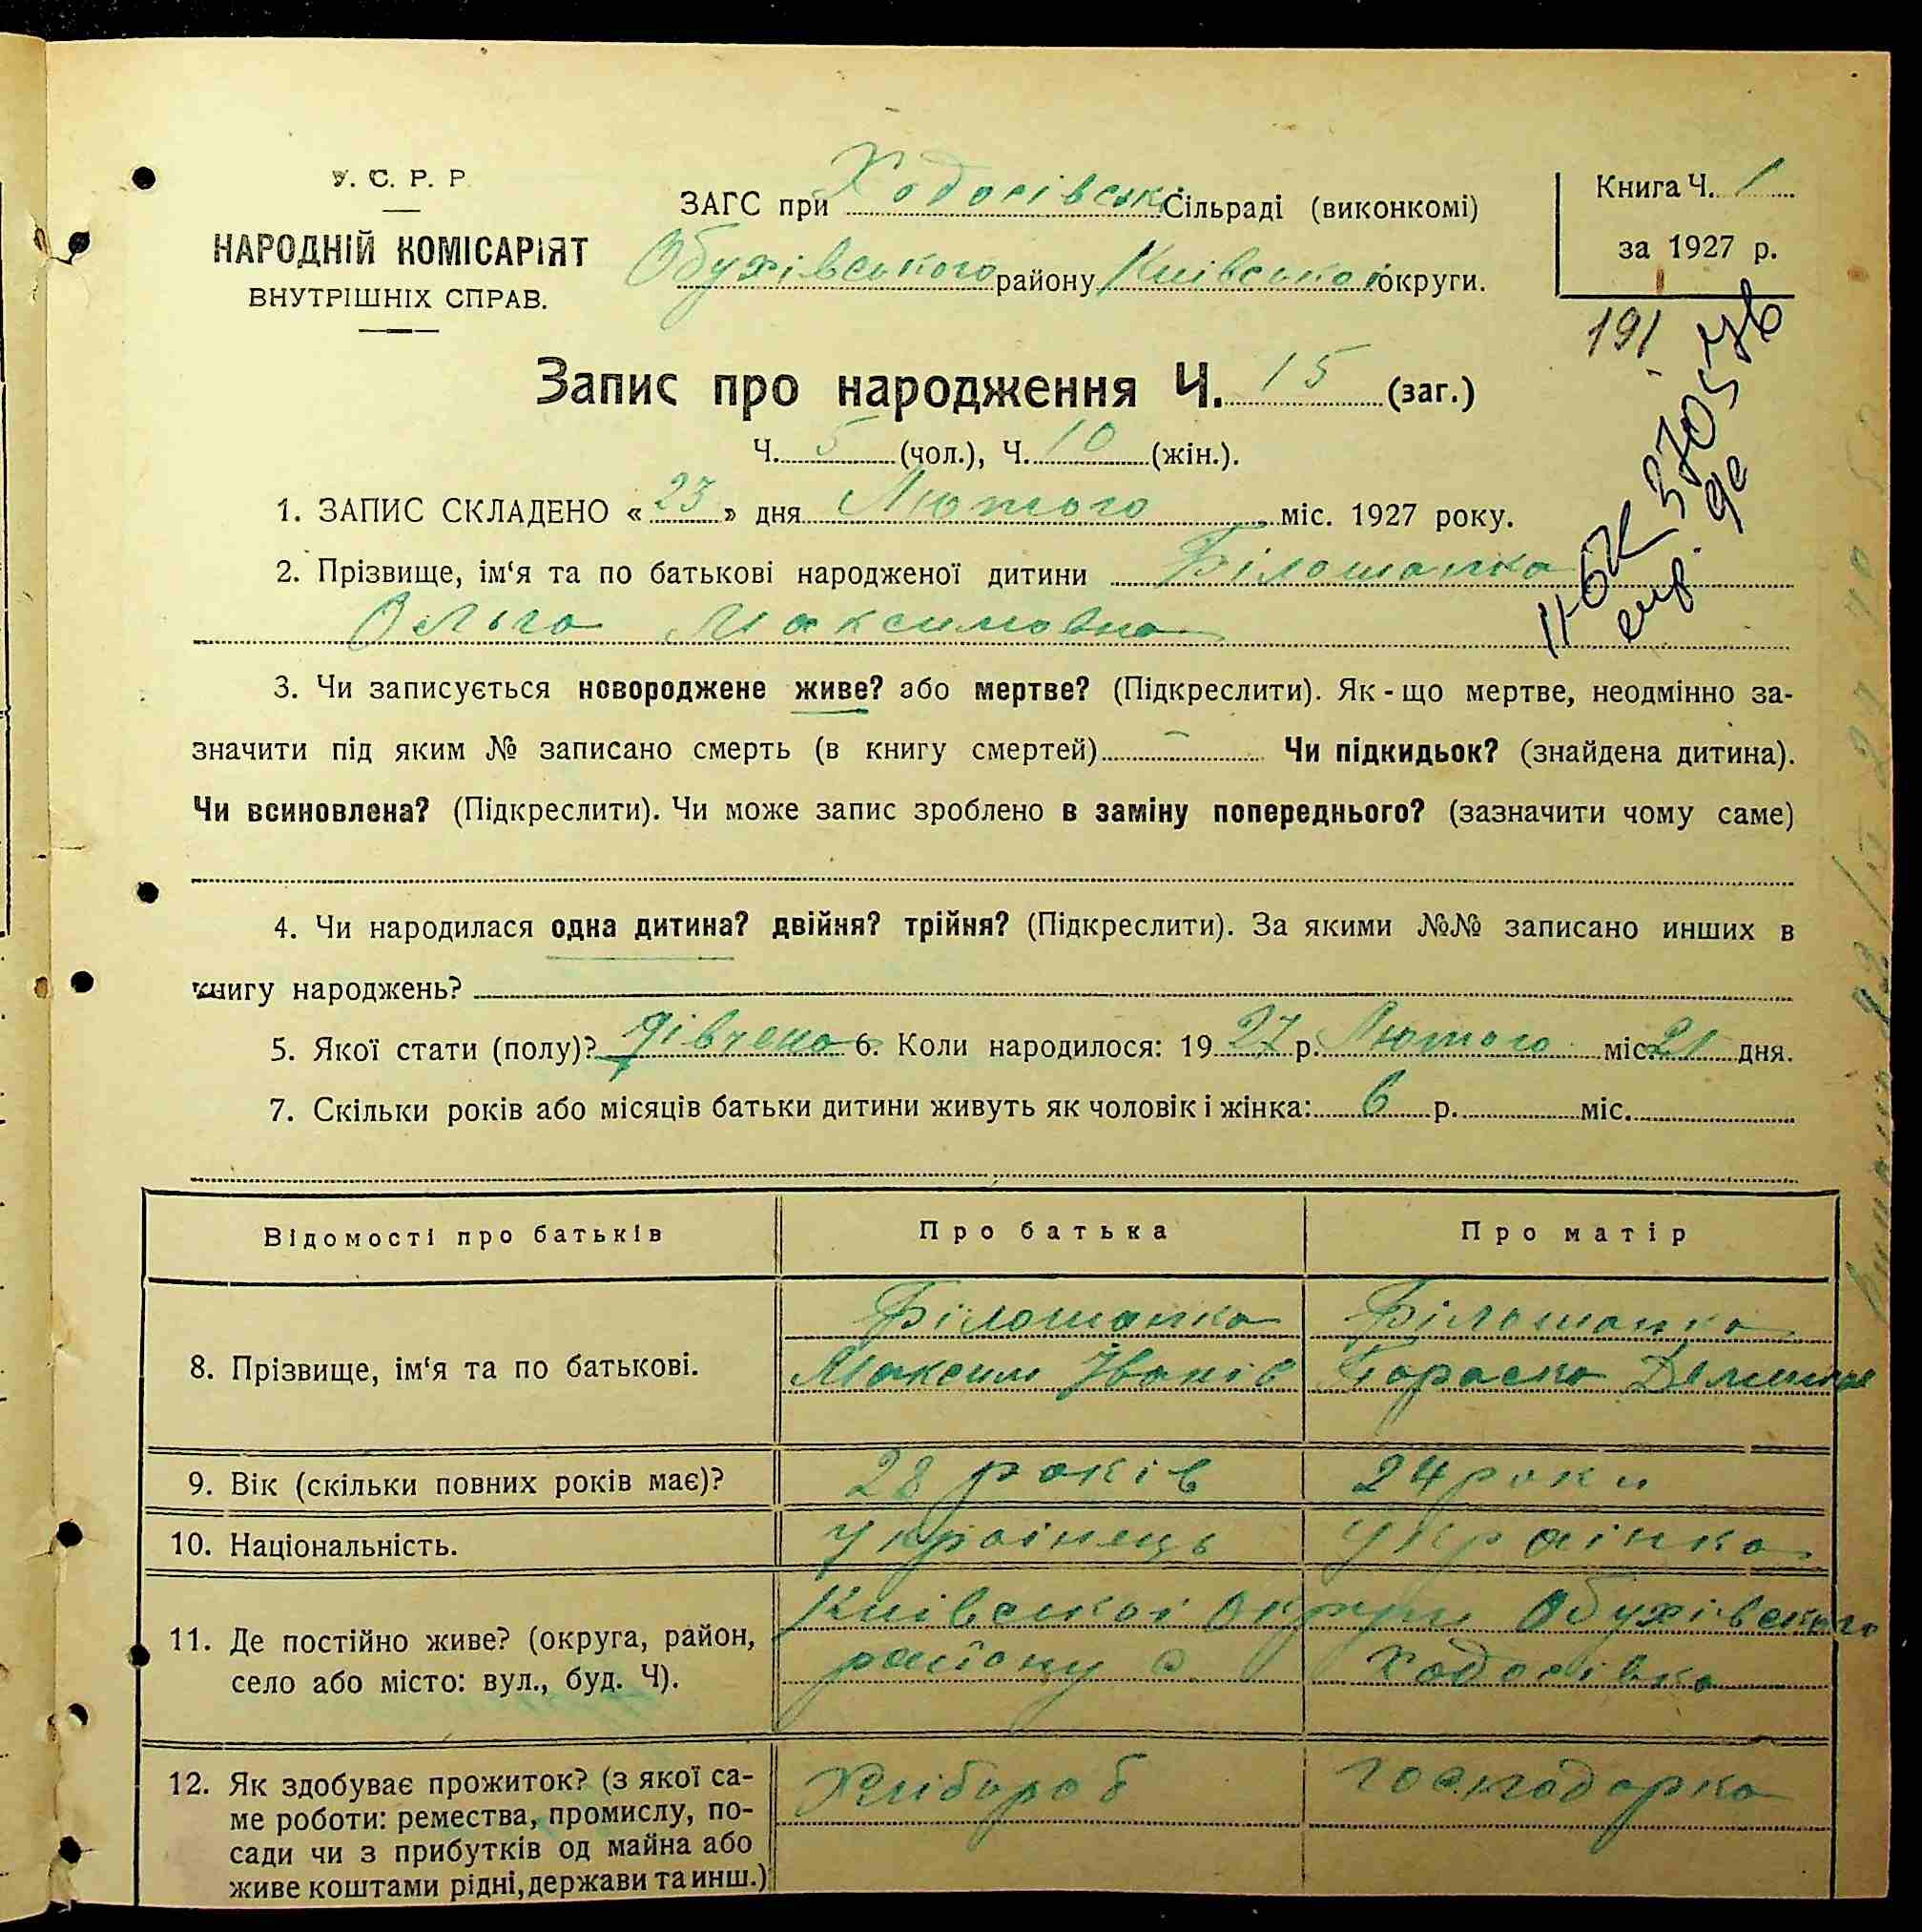 У. С. Р. Р.
НАРОДНІЙ КОМІСАРІЯТ
ВНУТРІШНІХ СПРАВ.
ЗАГС при Ходосівськ Сільраді (виконкомі)
Обухівського району Київської округи.
Книга Ч. 1
за 1927 р.
191
11-БК 370576
Запис про народження Ч. 15 (заг.)
Ч. 5 (чол.), Ч. 10 (жін.).
1. ЗАПИС СКЛАДЕНО «23» дня Лютого міс. 1927 року.
2. Прізвище, ім‘я та по батькові народженої дитини Білошапка
Ольга Максимовна
3. Чи записується новороджене живе? або мертве? (Підкреслити). Як-що мертве, неодмінно за-
значити під яким № записано смерть (в книгу смертей) — Чи підкидьок? (знайдена дитина).
Чи всиновлена? (Підкреслити). Чи може запис зроблено в заміну попереднього? (зазначити чому саме)
4. Чи народилася одна дитина? двійня? трійня? (Підкреслити). За якими №№ записано инших в
книгу народжень?
5. Якої стати (полу)? дівчена 6. Коли народилося: 1927 р. Лютого міс. 21 дня.
7. Скільки років або місяців батьки дитини живуть як чоловік і жінка: 6 р. міс.
Відомості про батьків Про батька Про матір
8. Прізвище, ім‘я та по батькові.
Білошапка Білошапка
Максим Іванів Параска
9. Вік (скільки повних років має)? 28 років 24 роки
10. Національність. Українець Українка
11. Де постійно живе? (округа, район,
село або місто: вул., буд. Ч).
Київської округи Обухівського
району с. Ходосівка
12. Як здобуває прожиток? (з якої са-
ме роботи: ремества, промислу, по-
сади чи з прибутків од майна або
живе коштами рідні, держави та инш.)
Хлібороб Господарка